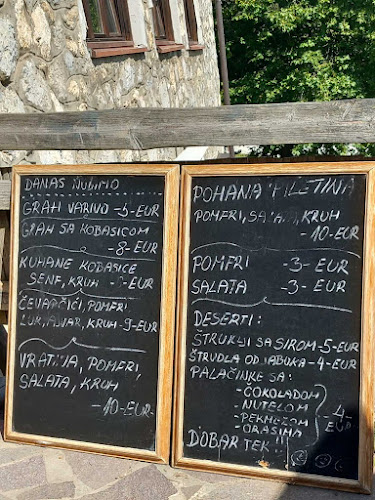 DANAS NUDIMO
GRAH VARIVO -5-EUR
GRAH SA KOBASICOM
-8-EUR
KUHANE KOBASICE
SENF, KRUH EUR
ČEVAPČIĆI, POMFRI
LUK, AJVAR, KRUH -9-EUR
POMFRI,
SALATA, KRUH
-10-EUR
POHANA FILETINA
POMFRI, KRUH
-10-EUR
POMFRI -3-EUR
SALATA -3-EUR
DESERTI:
ŠTRUKLJI SA SIROM -5-EUR
ŠTRUDLA OD JABUKA -4-EUR
PALAČINKE SA:
- ČOKOLADOM
- NUTELOM
- PEKMEZOM
- ORASIMA
4
EUR
DOBAR TEK!!